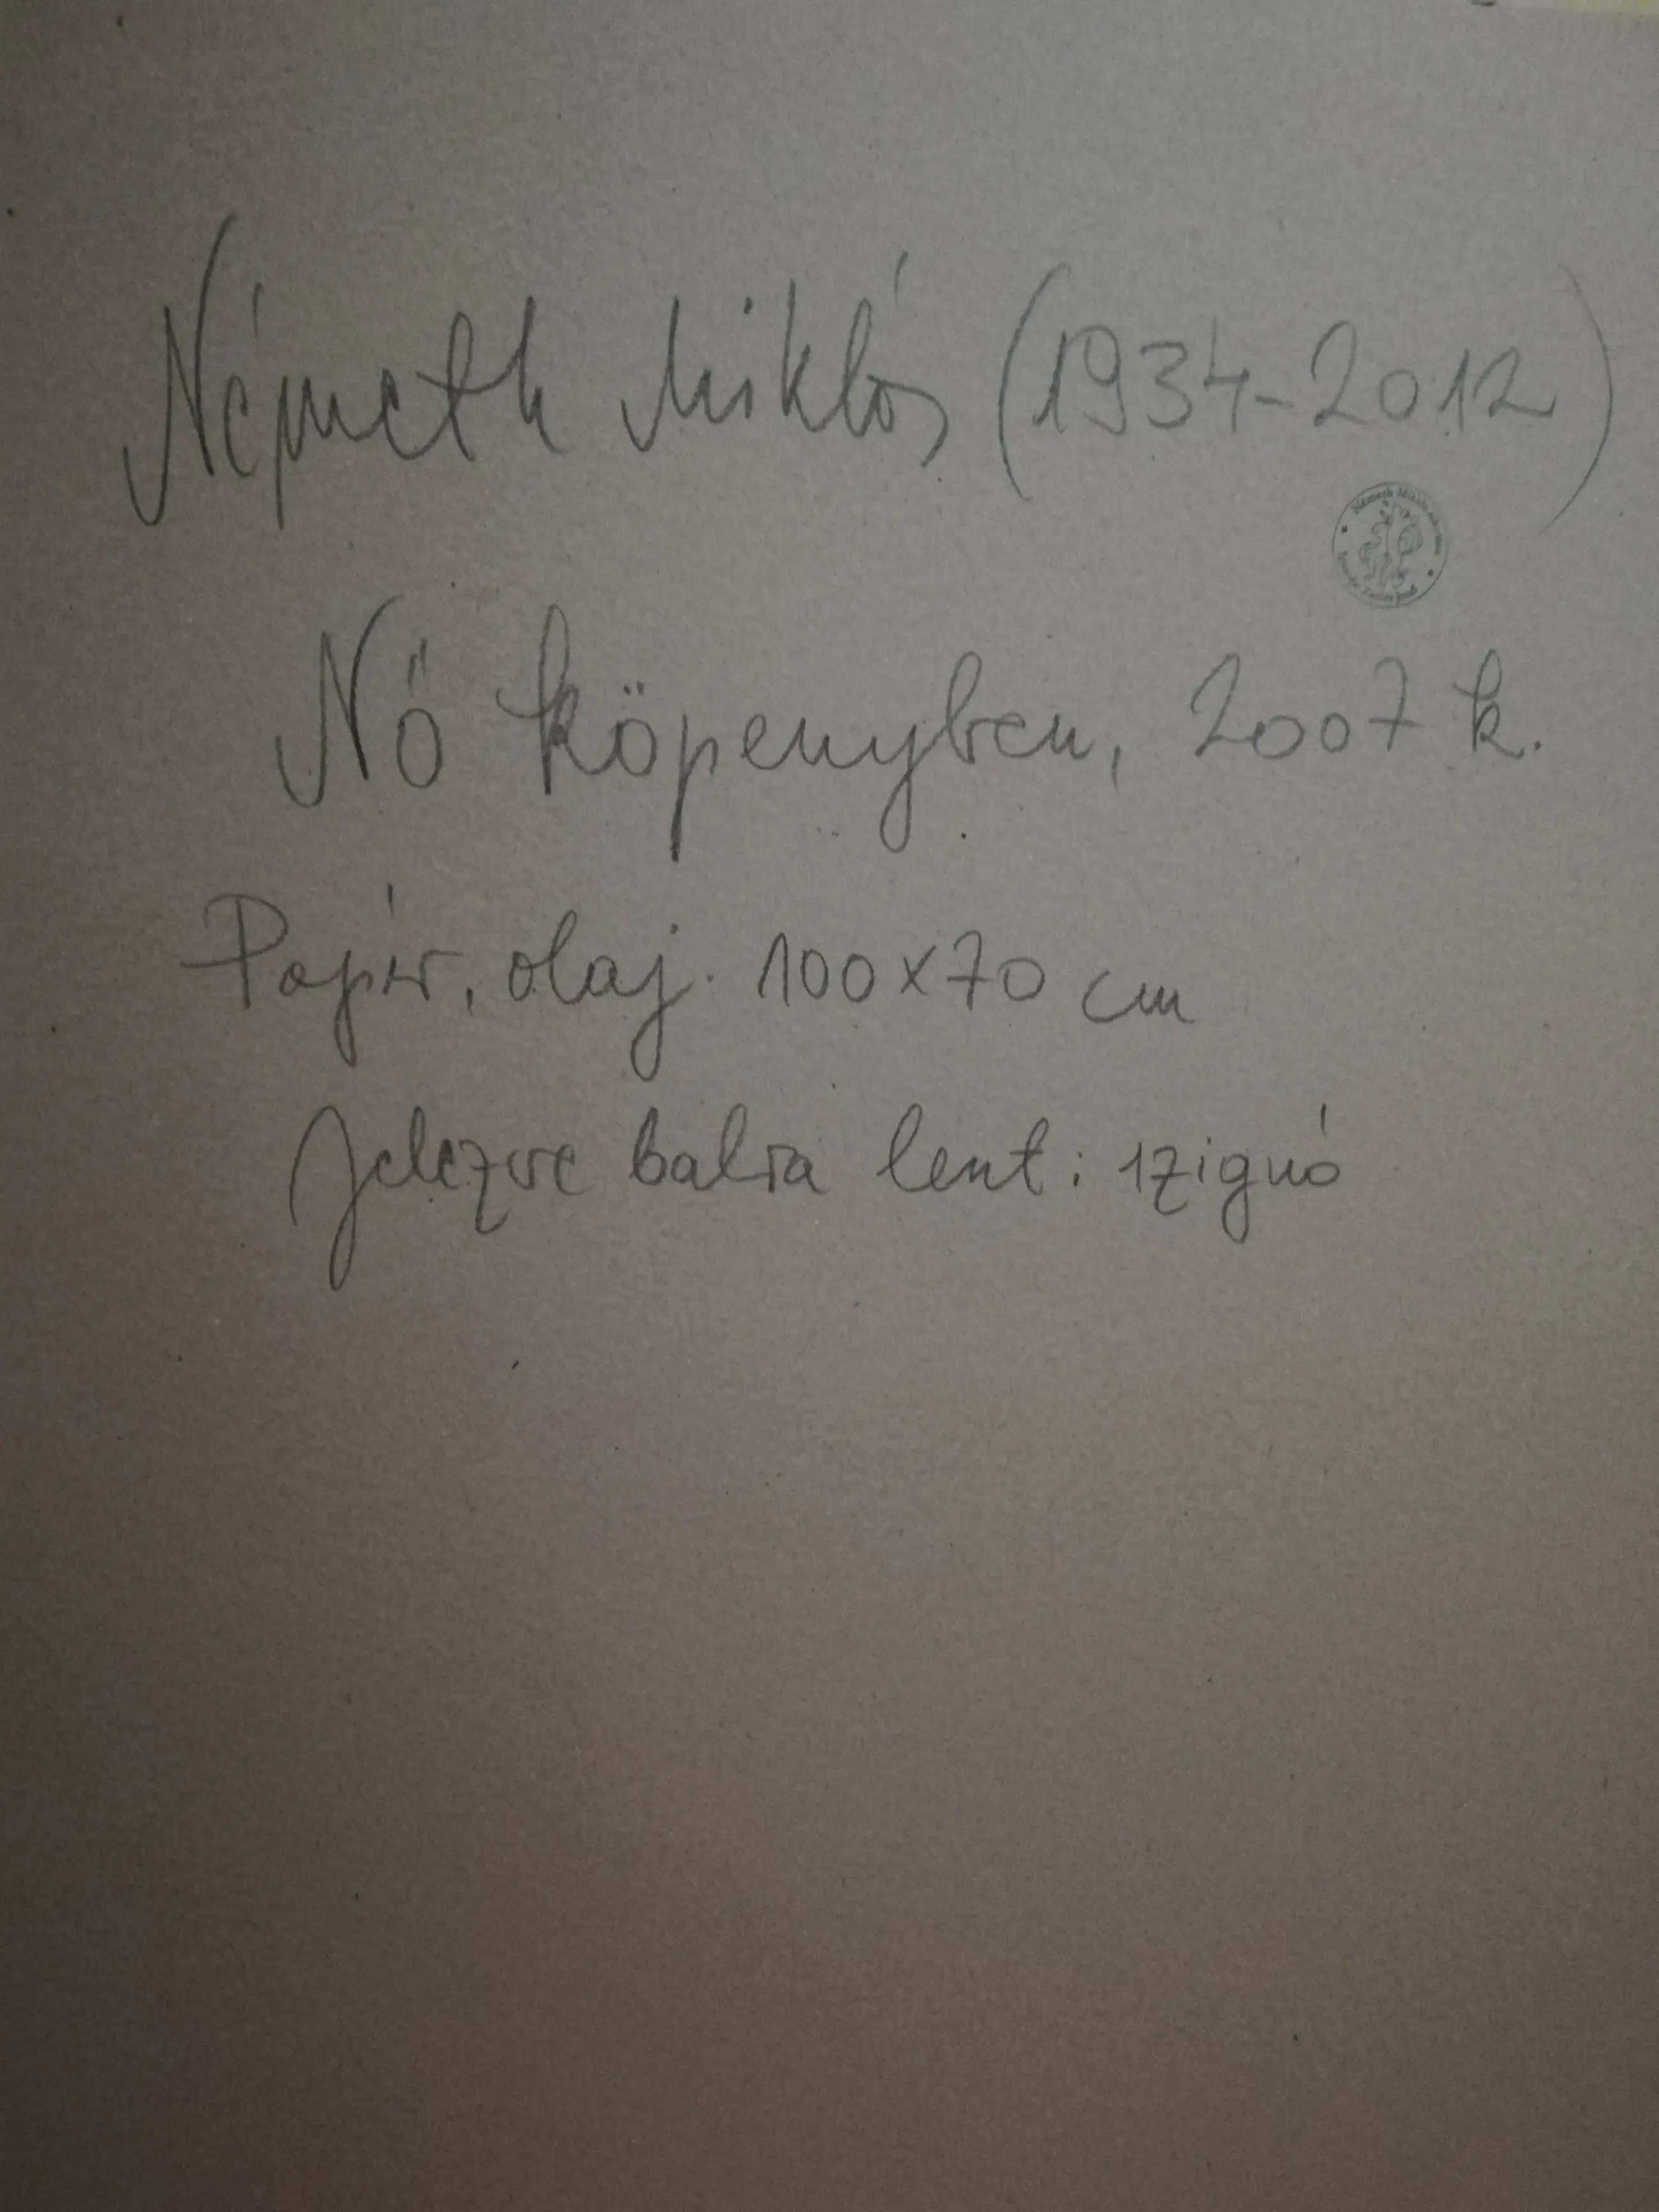 Németh Miklós (1934-2012)
Németh Miklós
Nő köpenyben, 2007 k.
Papír, olaj. 100x70 cm
Jelezve balra lent: szignó